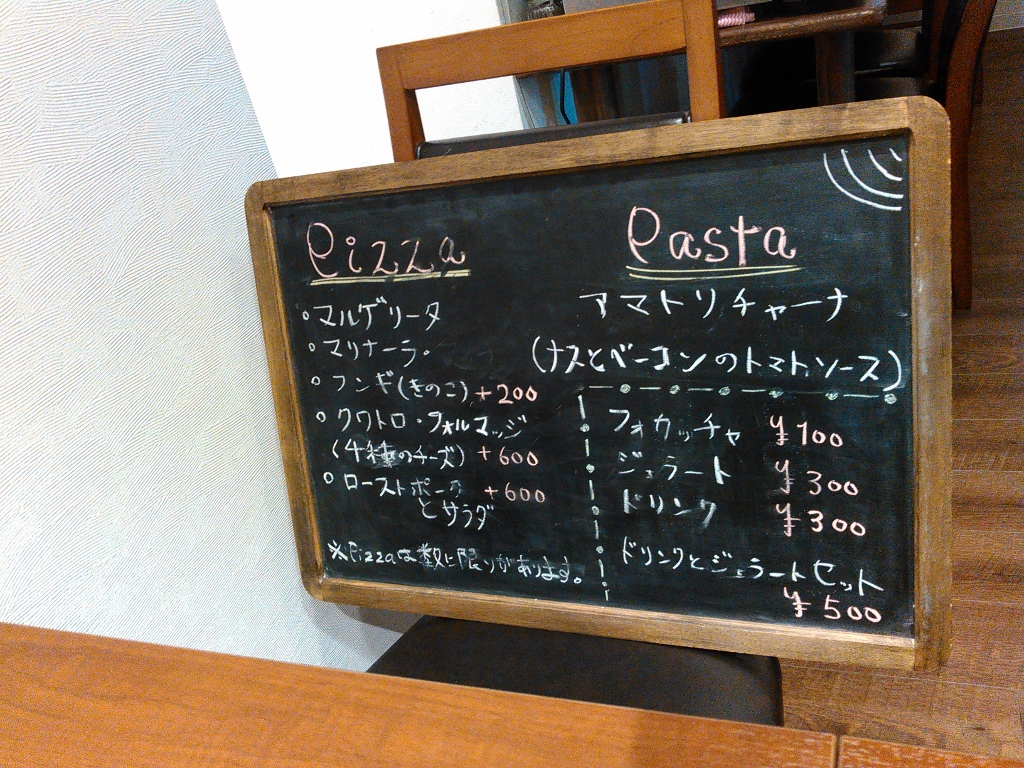 Pizza
○マルゲリータ
○マリナーラ。
○フンギ(きのこ) +200
○クワトロ・フォルマッジ
(4種のチーズ) +600
○ローストポーク +600
とサラダ
※Pizzaは数に限りがあります。
Pasta
アマトリチャーナ
(ナスとベーコンのトマトソース)
フォカッチャ ¥100
ジェラート ¥300
ドリンク ¥300
ドリンクとジェラートセット
¥500